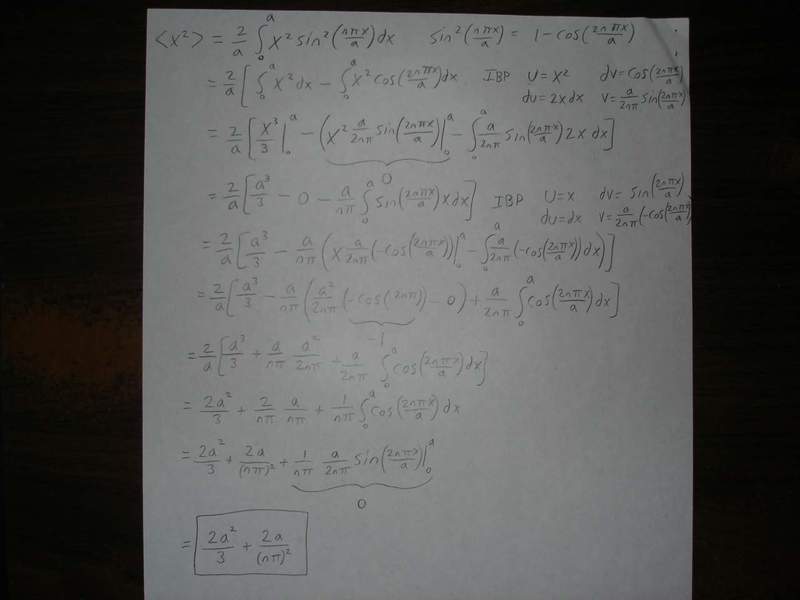 <x²> = 2/a ∫₀ᵃ x² sin²(nπx/a) dx sin²(nπx/a) = 1 - cos(2nπx/a)
= 2/a [∫₀ᵃ x² dx - ∫₀ᵃ x² cos(2nπx/a) dx IBP U = x² dv = cos(2nπx/a)
du = 2x dx v = a/2nπ sin(2nπx/a)
= 2/a [x³/3 |₀ᵃ - (x² a/2nπ sin(2nπx/a) |₀ᵃ - ∫₀ᵃ a/2nπ sin(2nπx/a) 2x dx]
0
= 2/a [a³/3 - 0 - a/nπ ∫₀ᵃ sin(2nπx/a) x dx] IBP U = x dv = sin(2nπx/a)
du = dx v = a/2nπ (-cos(2nπx/a)
= 2/a [a³/3 - a/nπ (x a/2nπ (-cos(2nπx/a)) |₀ᵃ - ∫₀ᵃ a/2nπ (-cos(2nπx/a)) dx)]
= 2/a [a³/3 - a/nπ (a²/2nπ (-cos(2nπ)) - 0) + a/2nπ ∫₀ᵃ cos(2nπx/a) dx]
-1
= 2/a [a³/3 + a/nπ a²/2nπ + a/2nπ ∫₀ᵃ cos(2nπx/a) dx]
= 2a²/3 + 2/nπ a/nπ + 1/nπ ∫₀ᵃ cos(2nπx/a) dx
= 2a²/3 + 2a/(nπ)² + 1/nπ a/2nπ sin(2nπx/a) |₀ᵃ
0
= 2a²/3 + 2a/(nπ)²